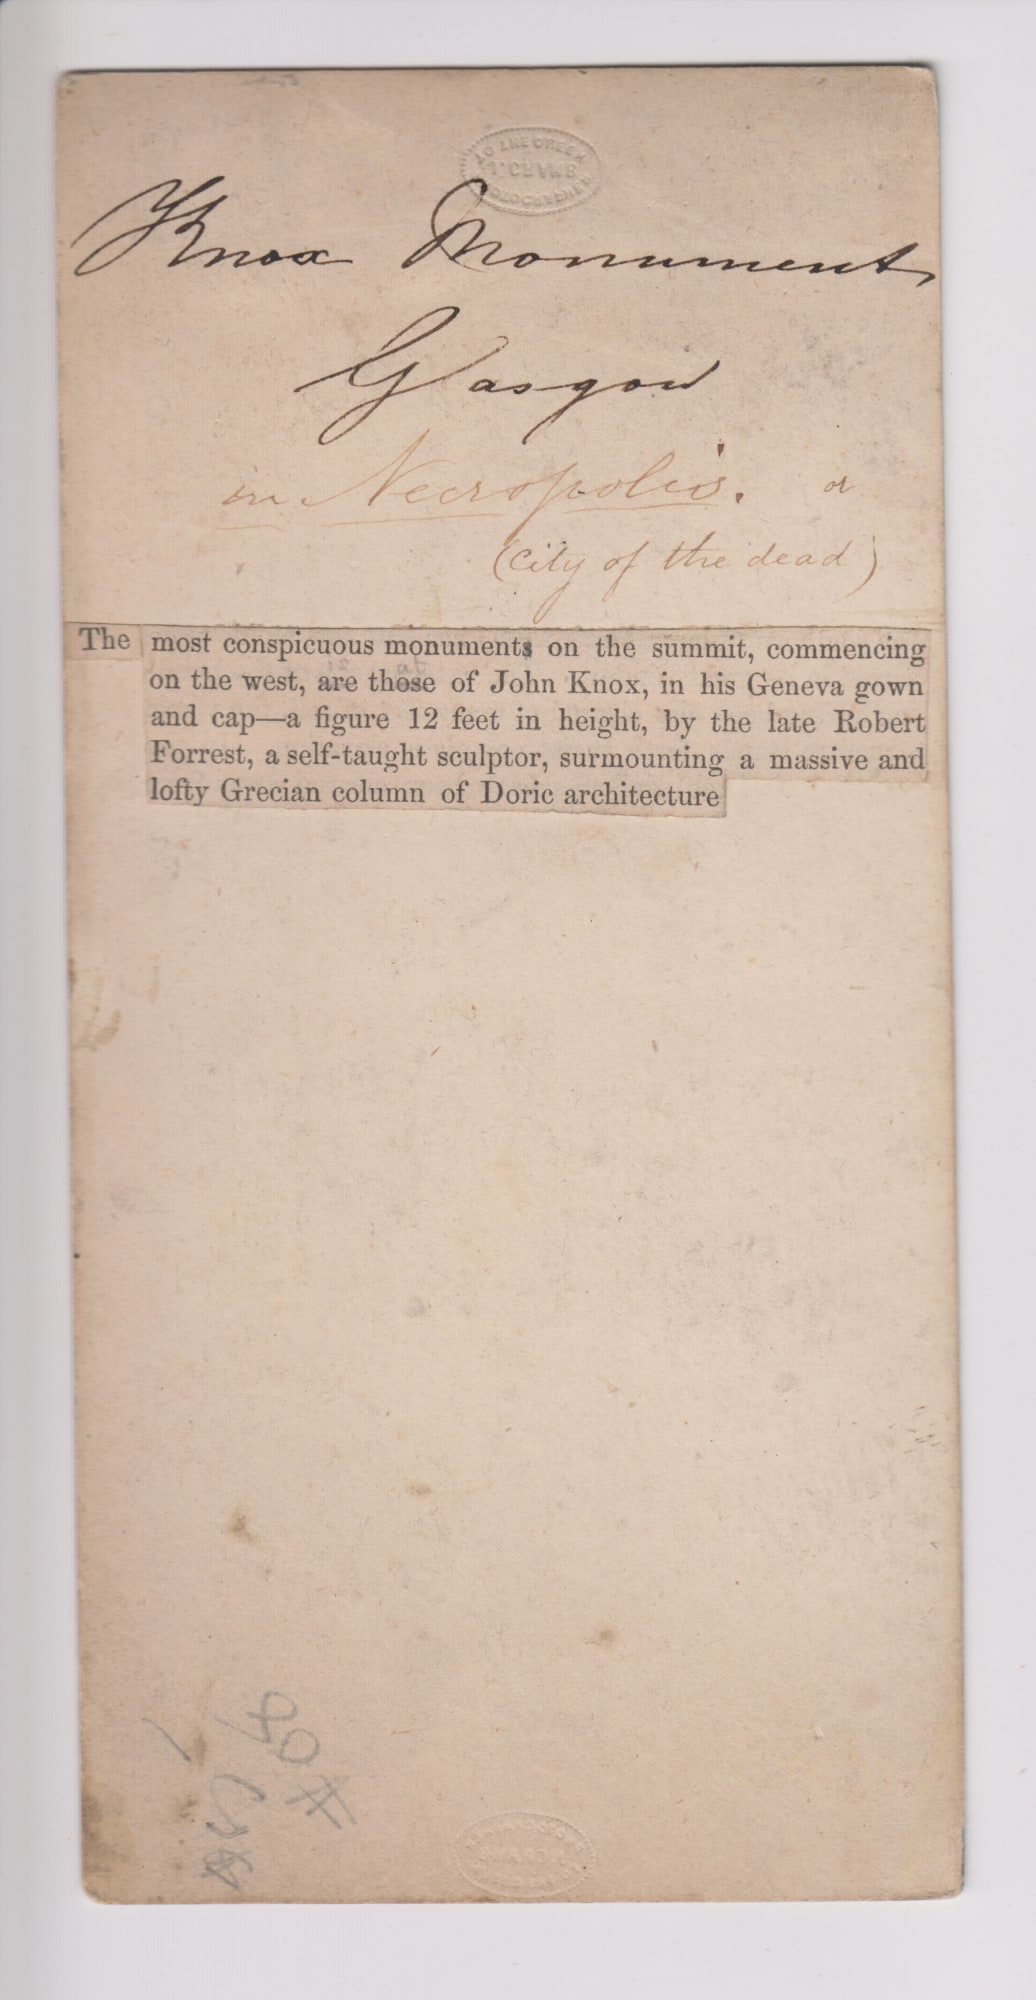 Knox Monument
Glasgow
in Necropolis. or
(city of the dead)
The most conspicuous monuments on the summit, commencing
on the west, are those of John Knox, in his Geneva gown
and cap—a figure 12 feet in height, by the late Robert
Forrest, a self-taught sculptor, surmounting a massive and
lofty Grecian column of Doric architecture